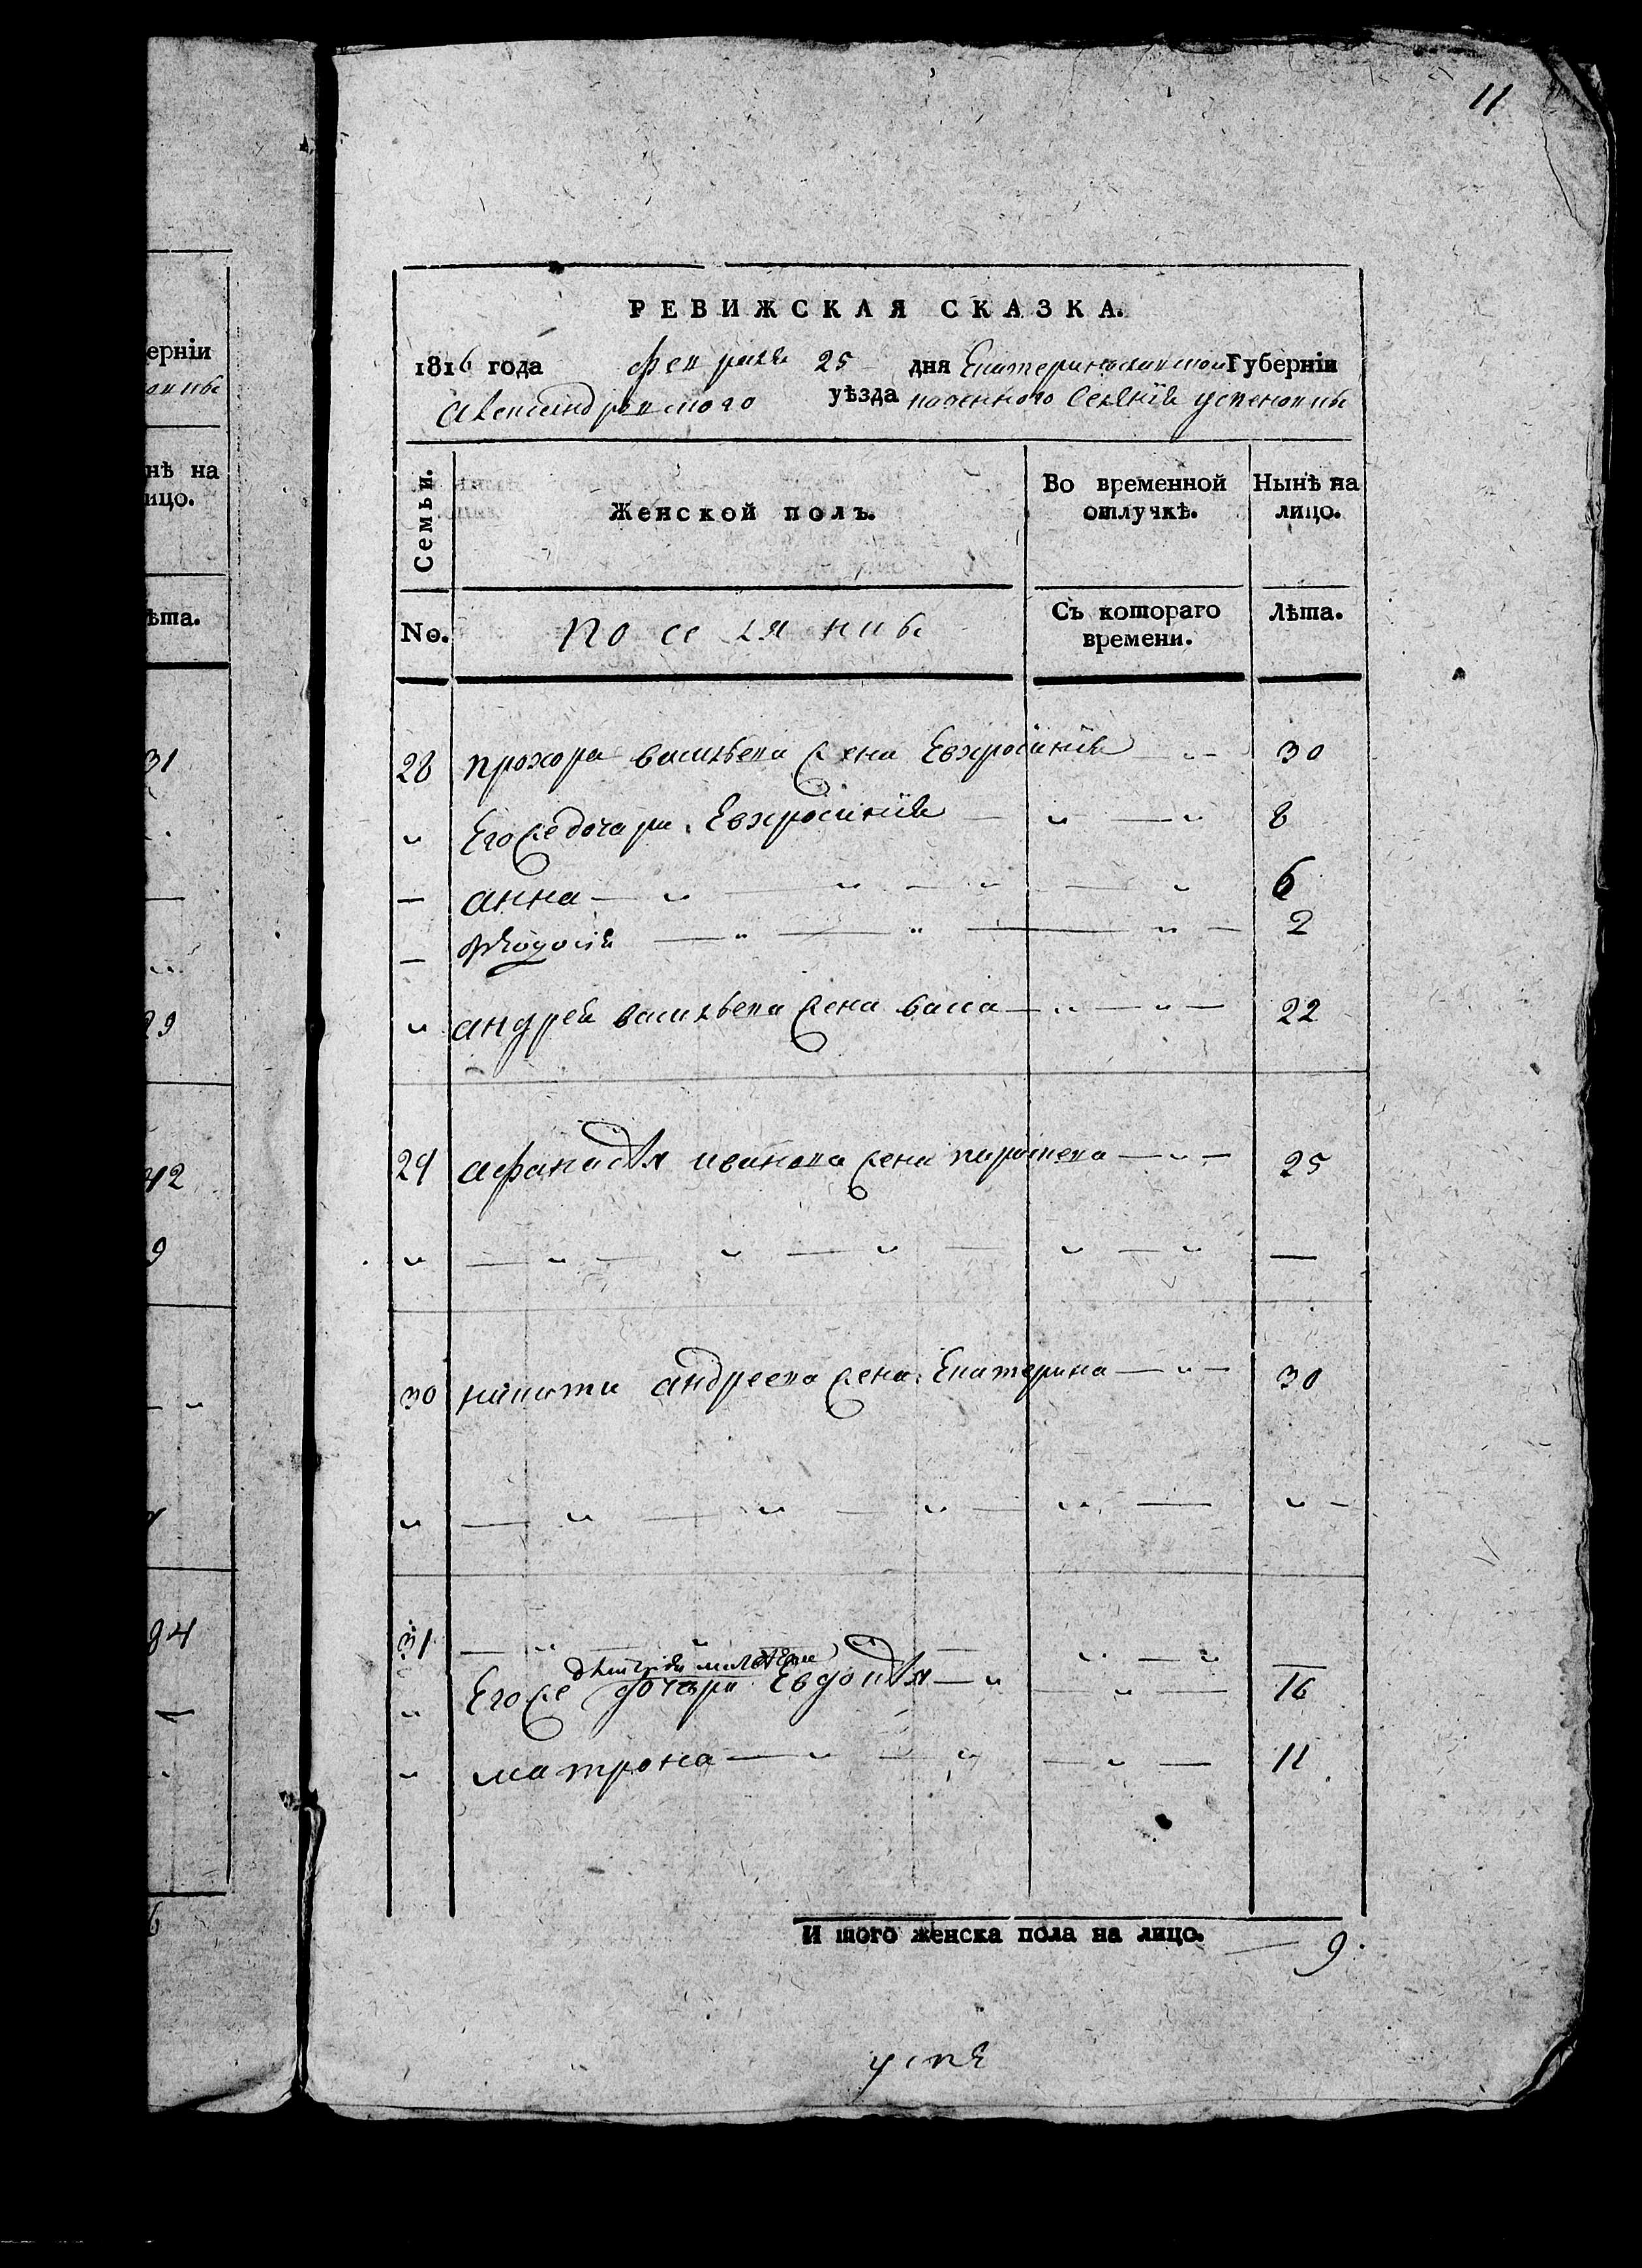 11
ерніи
нѣ на
ицо.
ѣта.
31
29
42
9
94
РЕВИЖСКАЯ СКАЗКА.
1816 года февраля 25 дня Екатеринославской Губерніи
Александровского уѣзда казенного селения успеновки
Семьи. Женской полъ. Во временной отлучкѣ. Нынѣ на лицо.
No. поселяники Съ котораго времени. Лѣта.
28 прохора васильева жена Евхросиния 30
" Его же дочери. Евхросиния " " 8
— анна — " — " — " — " 6
— Феодосия — " — " — " — 2
" андрея васильева жена васса — " — " — 22
29 афанасия иванова жена парасковa — " — 25
" — " — " — " — " — " —
30 никиты андреева жена Екатерина — " — 30
" — " — " — " — " — " —
31 — " — " — " — " —
дмитрия
" Его же дочери Евдокия — " — " — 16
" матрона — " — " — " — 11
И того женска пола на лицо. — 9.
успе